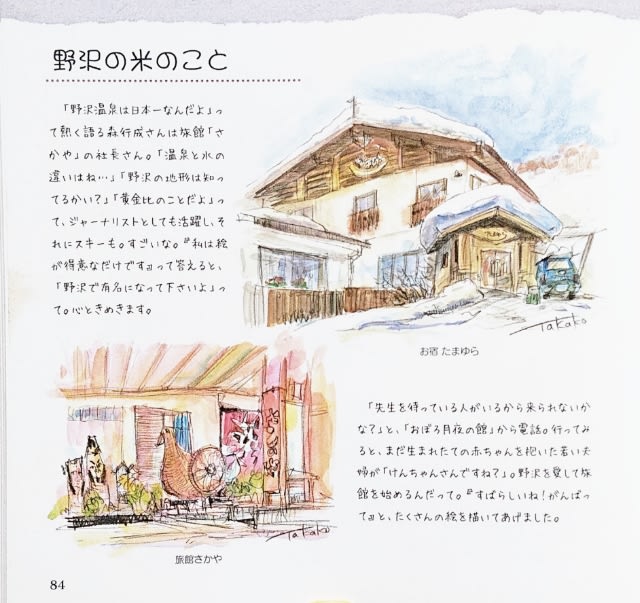 野沢の米のこと
「野沢温泉は日本一なんだよ」っ
て熱く語る森行成さんは旅館「さ
かや」の社長さん。「温泉と水の
違いはね…」「野沢の地形は知っ
てるかい？」「黄金比のことだよ」っ
て、ジャーナリストとしても活躍し、そ
れにスキーも。すごいな。『私は絵
が得意なだけです』って答えると、
「野沢で有名になって下さいよ」っ
て。心ときめきます。
Takako
お宿 たまゆら
「先生を待っている人がいるから来られないか
な？」と、「おぼろ月夜の館」から電話。行ってみ
ると、まだ生まれたての赤ちゃんを抱いた若い夫
婦が「けんちゃんさんですね？」。野沢を愛して旅
館を始めるんだって。『すばらしいね！がんばっ
て』と、たくさんの絵を描いてあげました。
Takako
旅館さかや
84